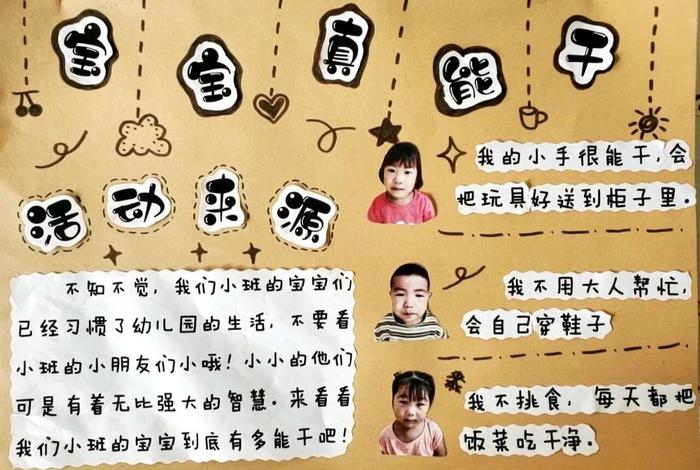 宝宝真能干
活动来源
不知不觉，我们小班的宝宝们
已经习惯了幼儿园的生活，不要看
小班的小朋友们小哦！小小的他们
可是有着无比强大的智慧．来看看
我们小班的宝宝到底有多能干吧！
我的小手很能干，会
把玩具好送到柜子里．
我不用大人帮忙，
会自己穿鞋子
我不挑食，每天都把
饭菜吃干净。